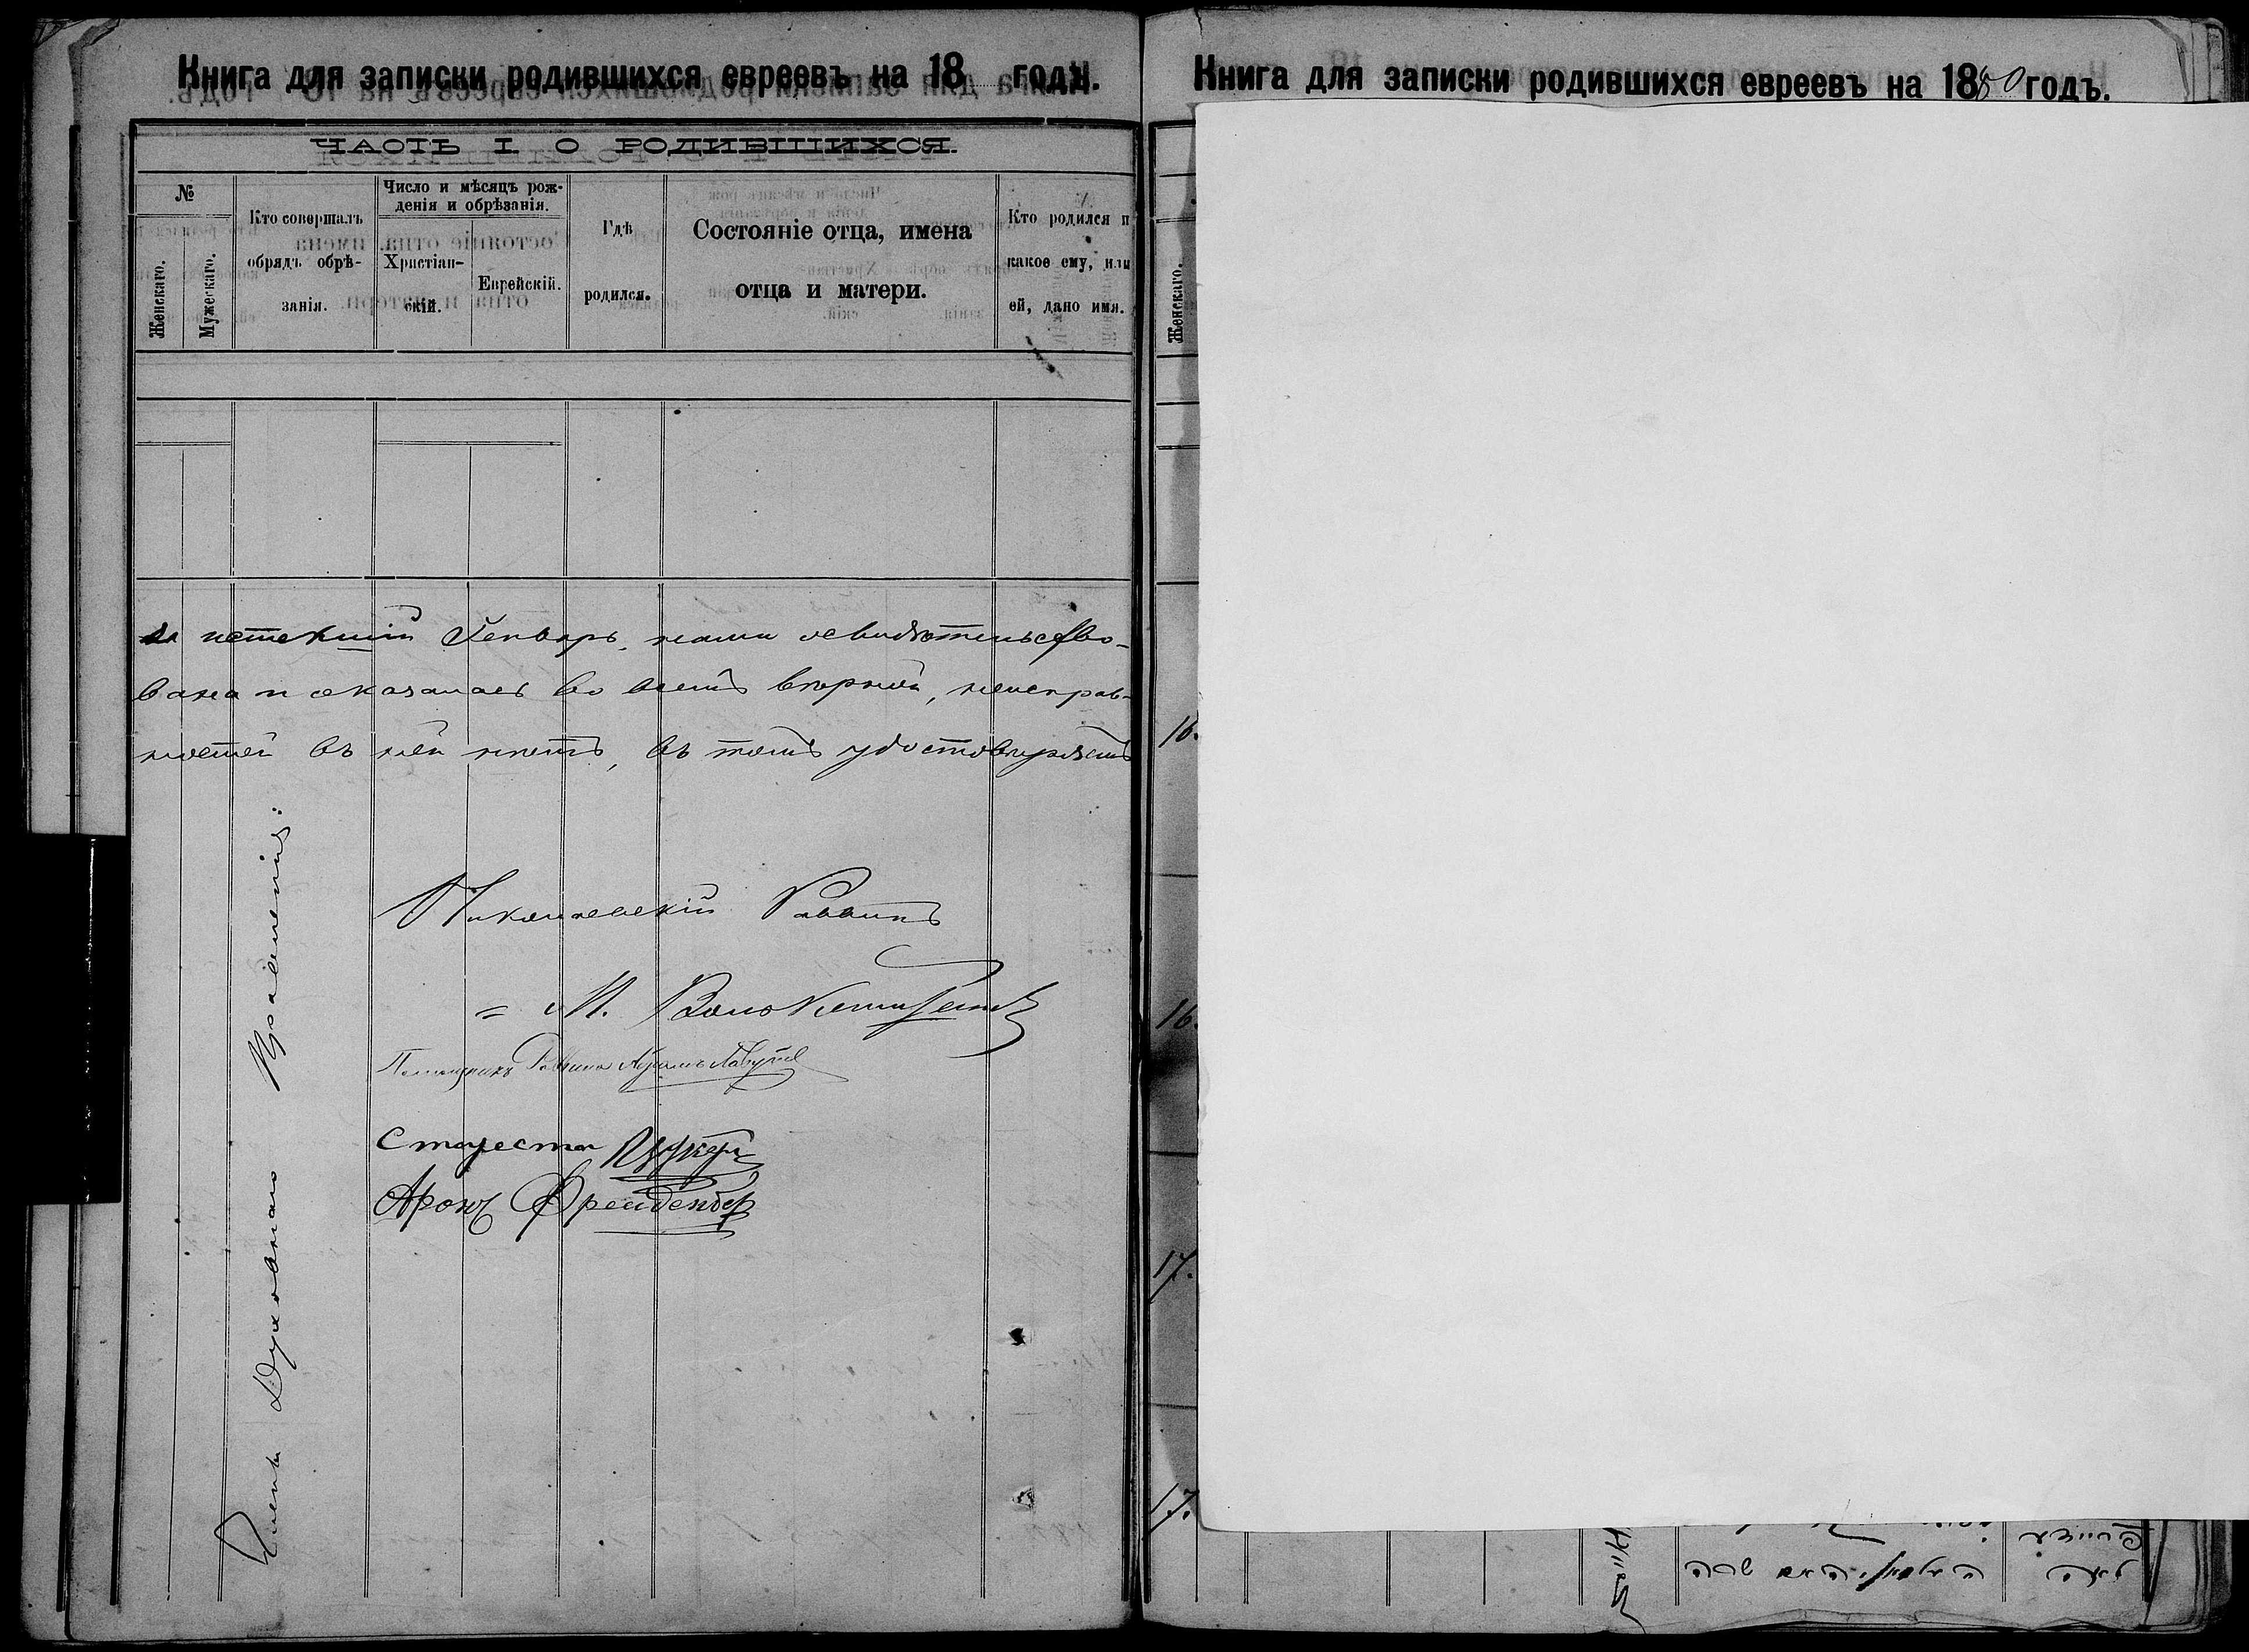 Книга для записки родившихся евреевъ на 18 годъ.
ЧАСТЬ I О РОДИВШИХСЯ.
№
Женскаго.
Мужескаго.
Кто совершалъ
обрядъ обрѣ-
занія.
Число и мѣсяцъ рож-
денія и обрѣзанія.
Христіан-
скій.
Еврейскій.
Гдѣ
родился.
Состояніе отца, имена
отца и матери.
Кто родился и
какое ему, или
ей, дано имя.
за истекшій Генварь, нами освидѣтельство-
вана и оказалась во всемъ вѣрной, неисправ-
ностей въ ней нѣтъ, въ томъ удостовѣряемъ
Члены Духовнаго Правленія:
Николаевскій Раввинъ
М.
Помощникъ Раввина
Староста
Аронъ Фрейденбер
Книга для записки родившихся евреевъ на 1880 годъ.
Женскаго.
16.
16.
17.
17.